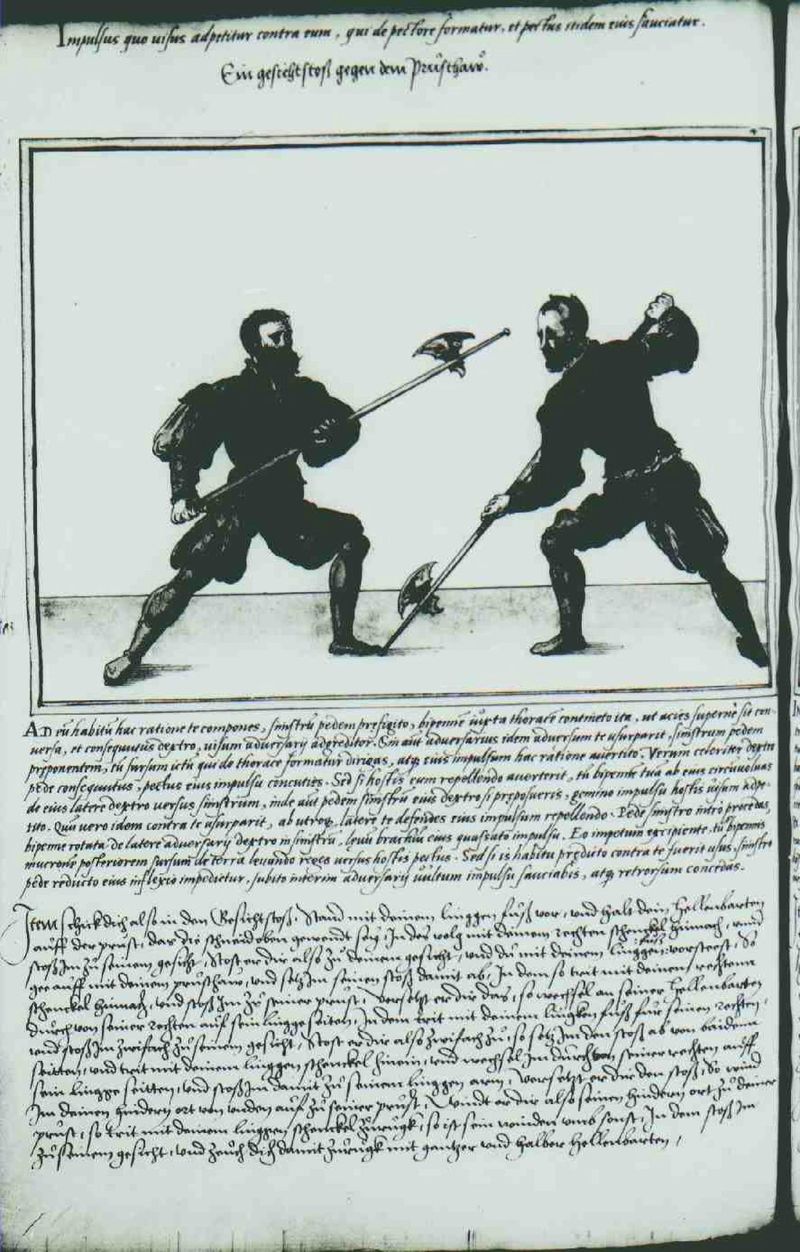 Impulsus quo uisus adpetitur contra eum, qui de pectore formatur, et pectus itidem eius sauciatur.
Ein gesichtstoß gegen dem Prusthaw.
AD eū habitū hac ratione te compones, sinistrū pedem prefigito, bipennē iuxta thoracē contineto ita, ut acies supernè sit con-
uersa, et consequutus dextro, uisum aduersarij adgreditor. Sin aūt aduersarius idem aduersum te usurparit, sinistrum pedem
preponentem, tū sursum ictū qui de thorace formatur dirigas, atq; eius impulsum hac ratione auertito. Verum celeriter dextro
pede consequutus, pectus eius impulsu concuties. Sed si hostis eum repellendo auerterit, tū bipennē tuā ab eius circūuoluas
de eius latere dextro versus sinistrum, inde aūt pedem sinistrū eius dextro si preposueris, gemino impulsu hostis uisum adpe-
tito. Quū vero idem contra te usurparit, ab utroq; latere te defendes eius impulsum repellendo. Pede sinistro intrò procedas,
bipenne rotata de latere aduersarij dextro in sinistrū, leuū brachiū eius quassato impulsu. Eo impetum excipiente, tū bipennis
mucronē posteriorem sursum de terra leuando versus hostis pectus. Sed si is habitu predicto contra te fuerit usus, sinistro
pede reducto eius inflexio impedietur, subito interim aduersarij uultum impulsu sauciabis, atq; retrorsum concedas.
Item schick dich also in den Gesichtstoß, Stand mit deinem linggen fuß vor, vnd halt dein hellenbarten
auff der prust, dar die schneid oben gewendt sey, Indes volg mit deinem rechten schenckel hinnach, vnnd
stoß Im zu seinem gesicht, Stost er dir also zu deinem gesicht, vnd du mit deinem linggen fuß vorsteest, So
gee auff mit deinem prusthaw, vnd setz Im seinen stoß damit ab, In dem so trit mit deinem rechtenn
schenckel hinnach, vnd stoß Im zu seiner prust, Versetzt er dir das, so wechsel an seiner hellenbarten
durch von seiner rechten auf sein lingge seiten, In dem trit mit deinem linggen fuß für seinen rechten,
vnnd stoß Im zwifach zu seinem gesicht, Stost er dir also zwifach zu, so setz Im den stoß ab von baiden
seitten, vnd trit mit deinem linggen schenckel hinein, vnd wechsel Im durch von seiner rechten auff
sein lingge seitten, vnd stoß Im damit zu seinem linggen arm, Versetzt er dir den stoß, So wind
Im deinen hindern ort von vnden auf zu seiner prust, Windt er dir also seinen hindern ort zu deiner
prust, so trit mit deinem linggen schenckel zurugk, so ist sein winden vmb sonst, In dem stoß Im
zu seinem gesicht, vnd zeuch dich damit zurugk mit gantzer vnd halber hellenbarten,